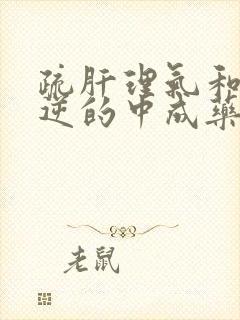 疏肝理气和
逆的中成药
老鼠